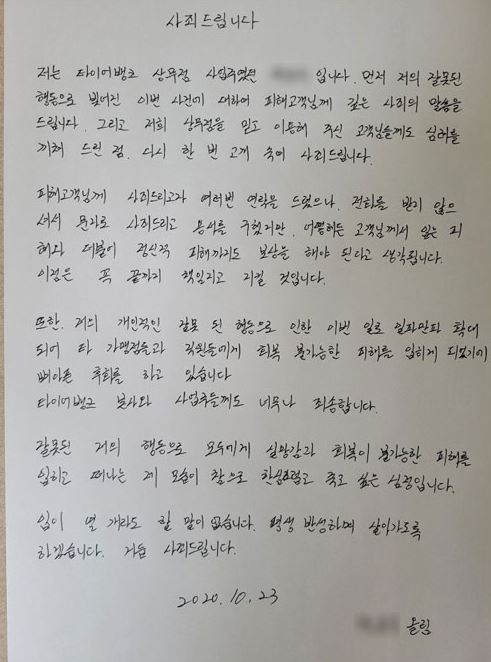 사죄드립니다
저는 타이어뱅크 상무점 사업주였던 입니다. 먼저 저의 잘못된
행동으로 빚어진 이번 사건에 대하여 피해고객님께 깊은 사죄의 말씀을
드립니다. 그리고 저희 상무점을 믿고 이용해 주신 고객님들께도 심려를
끼쳐 드린 점. 다시 한 번 고개 숙여 사죄드립니다.
피해고객님께 사죄드리고자 여러번 연락을 드렸으나. 전화를 받지 않으
셔서 문자로 사죄드리고 용서를 구했지만. 어떻게든 고객님께서 입는 피
해와 더불어 정신적 피해까지도 보상을 해야 된다고 생각됩니다.
이점은 꼭 끝까지 책임지고 지킬 것입니다.
또한. 저의 개인적인 잘못 된 행동으로 인한 이번 일로 일파만파 확대
되어 타 가맹점들과 직원들에게 회복 불가능한 피해를 입히게 되었기에
뼈아픈 후회를 하고 있습니다
타이어뱅크 본사와 사업주들께도 너무나 죄송합니다.
잘못된 저의 행동으로 모두에게 실망감과 회복이 불가능한 피해를
입히고 떠나는 제 모습이 참으로 한심스럽고 죽고 싶은 심정입니다.
입이 열 개라도 할 말이 없습니다. 평생 반성하며 살아가도록
하겠습니다. 거듭 사죄드립니다.
2020.10.23
올림